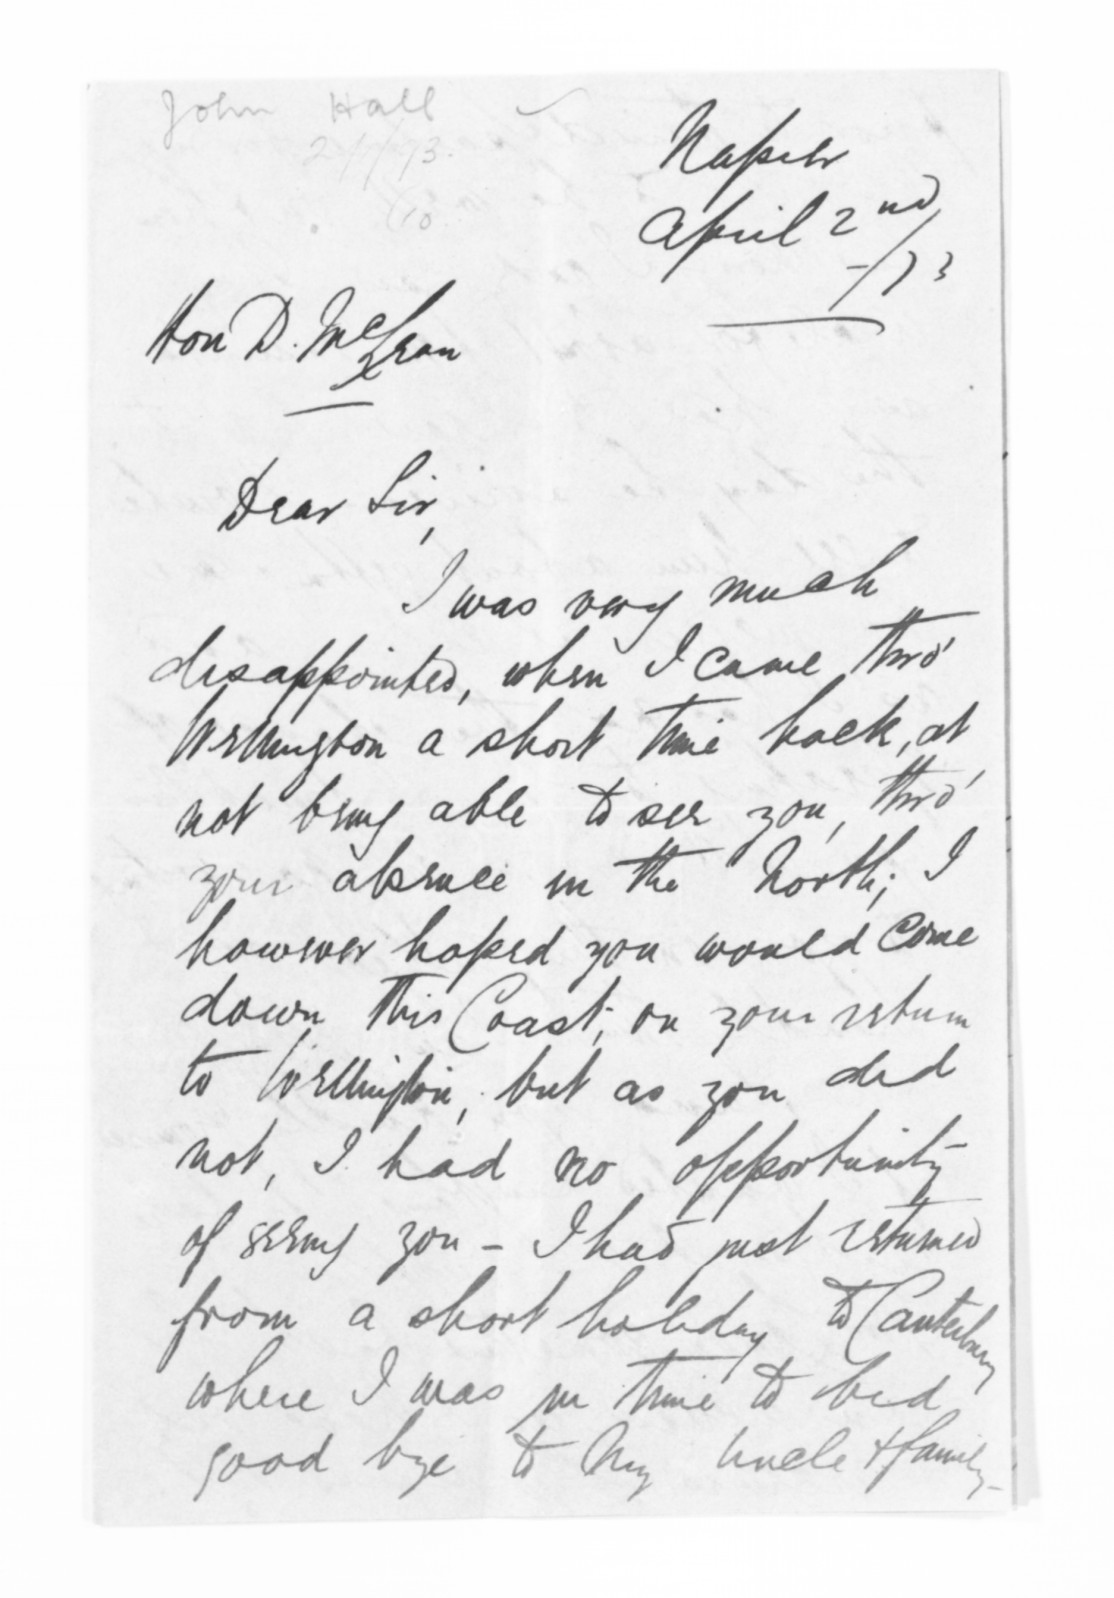 John Hall
2/4/73.
(10
Napier
April 2nd
-/73
Hon D. McLean
Dear Sir,
I was very much
disappointed, when I came thro'
Wellington a short time back, at
not being able to see you, thro'
your absence in the North; I
however hoped you would come
down this Coast, on your return
to Wellington, but as you did
not, I had no opportunity
of seeing you - I had just returned
from a short holiday to Canterbury
where I was in time to bid
good bye to my Uncle & family -